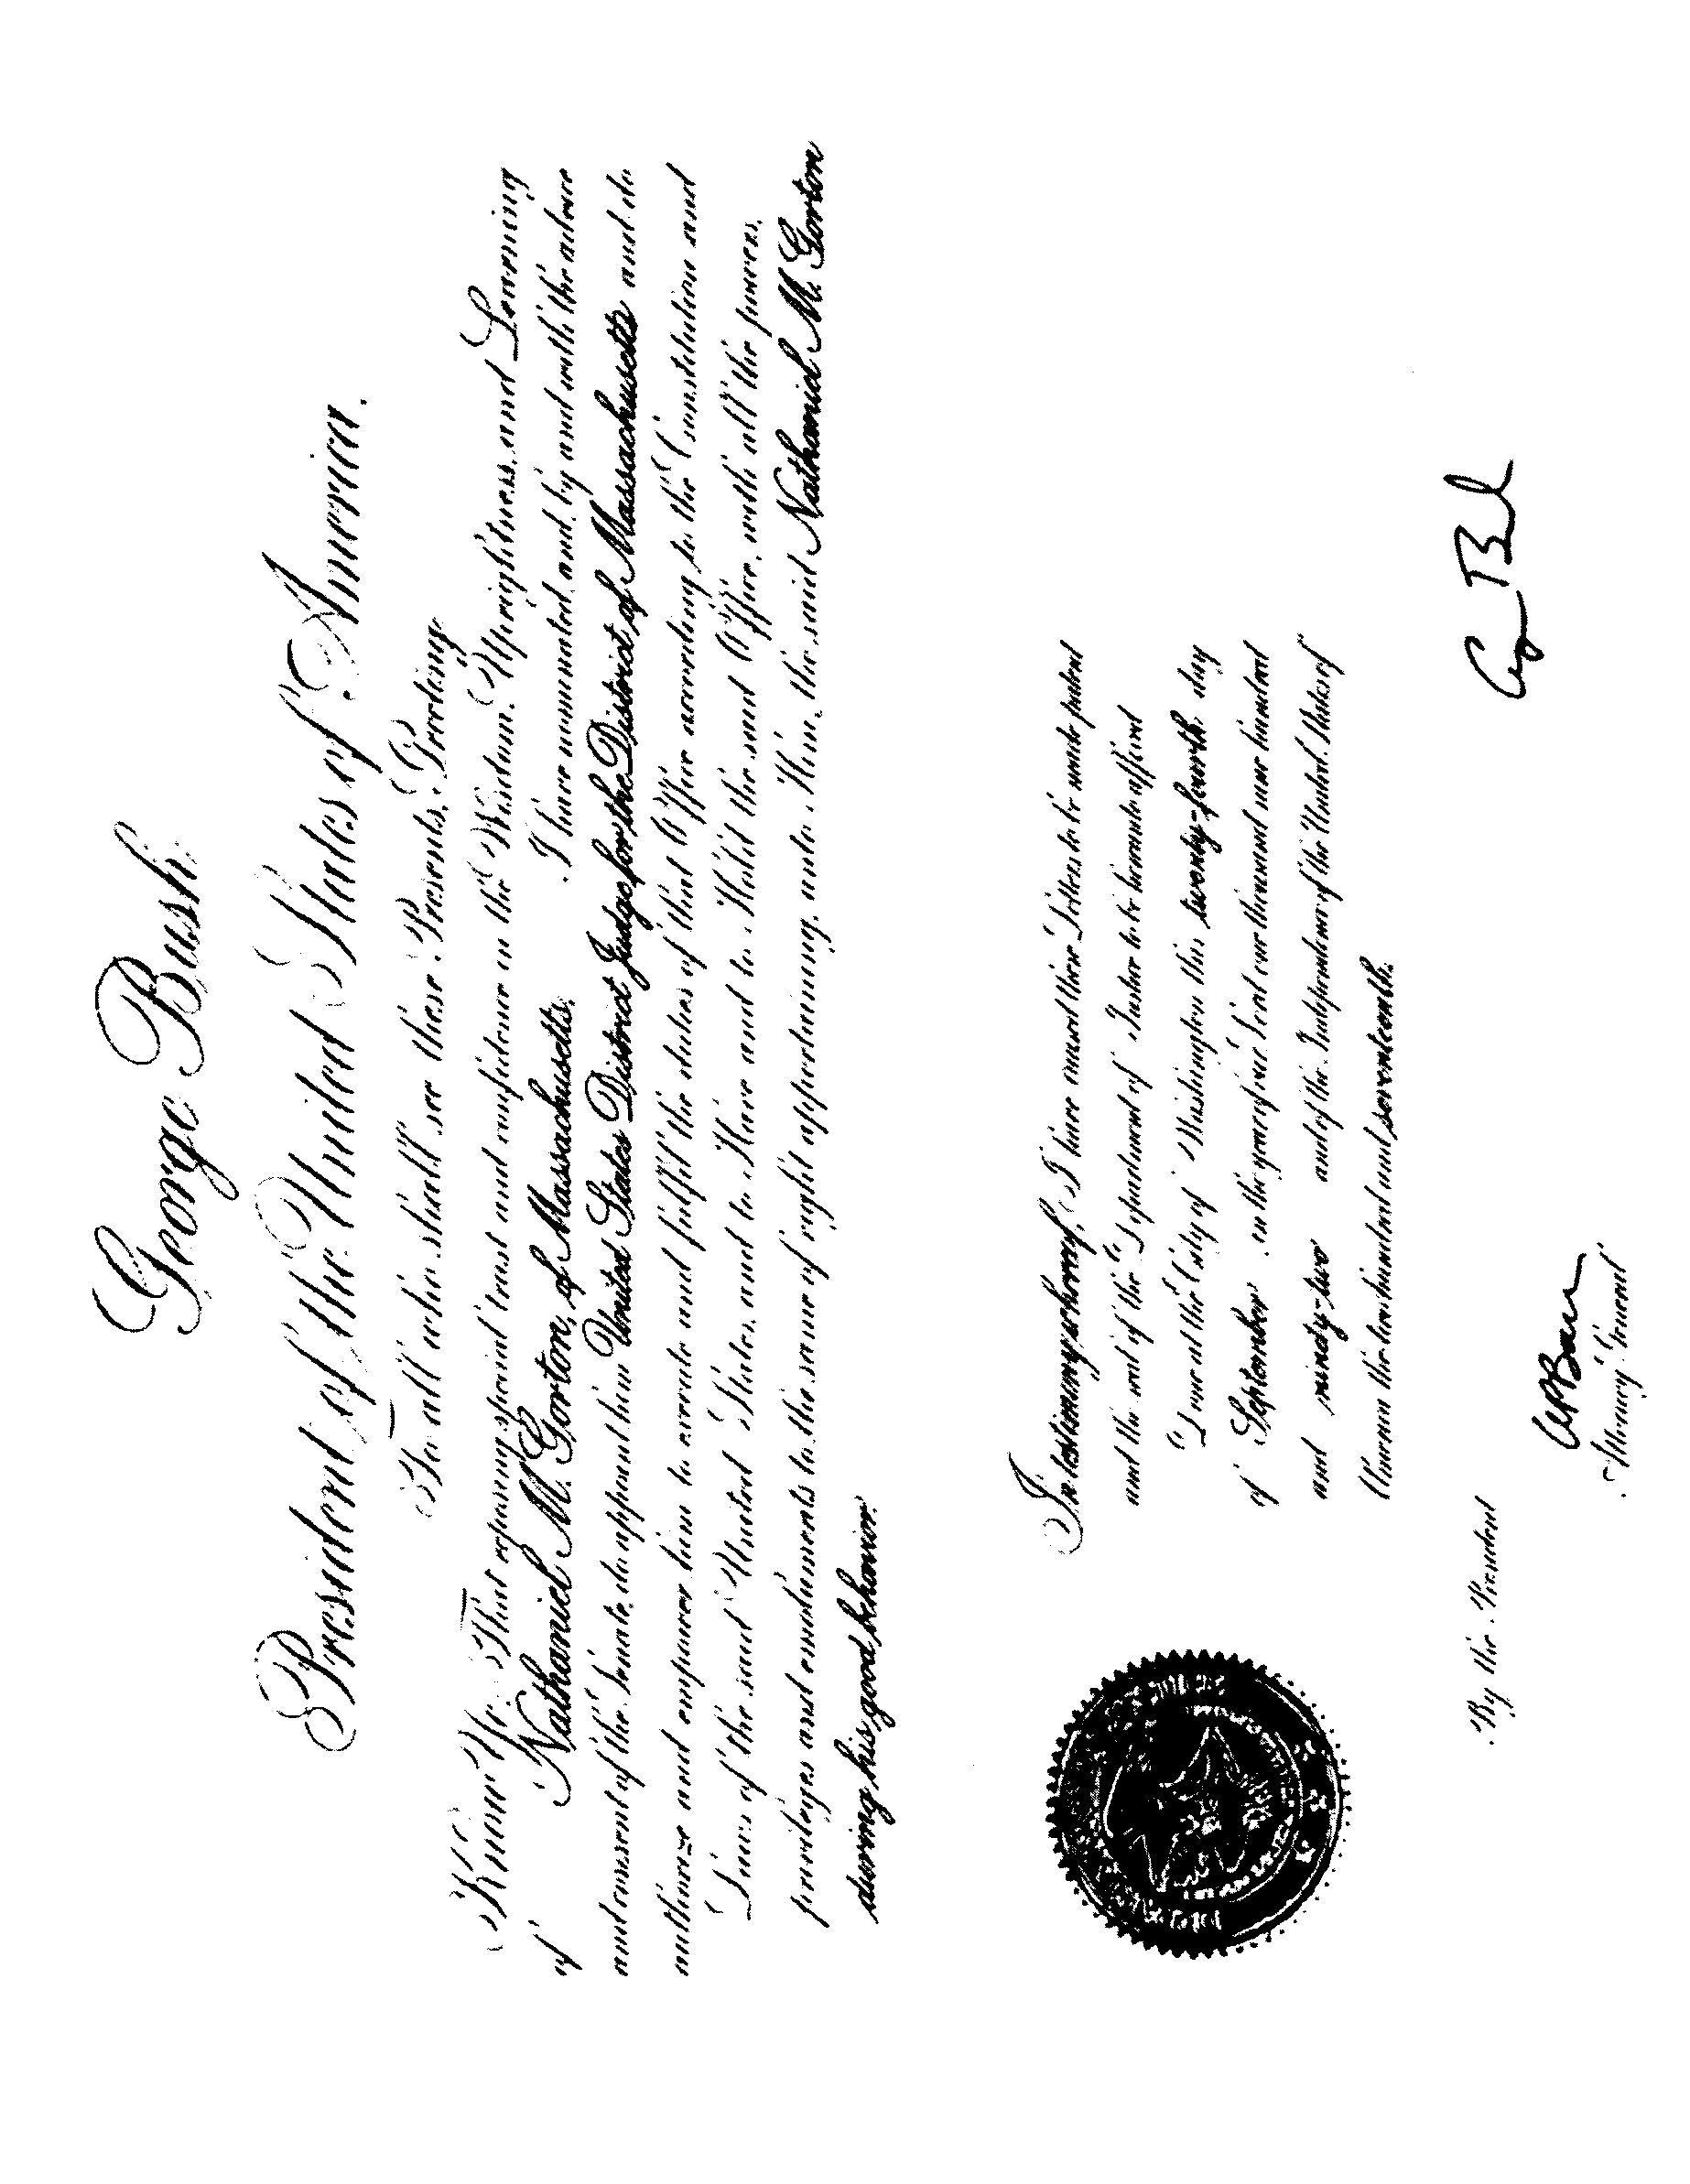 George Bush
President of the United States of America.
To all who shall see these Presents, Greeting
Know Ye, That reposing special trust and confidence in the Wisdom, Uprightness, and Learning
of Nathaniel M. Gorton, of Massachusetts, I have nominated, and, by and with the advice
and consent of the Senate, do appoint him United States District Judge for the District of Massachusetts and do
authorize and empower him to execute and fulfil the duties of that Office according to the Constitution and
Laws of the said United States, and to Have and to Hold the said Office, with all the powers,
privileges and emoluments to the same of right appertaining, unto Him, the said Nathaniel M. Gorton
during his good behavior.
In testimony whereof, I have caused these Letters to be made patent
and the seal of the Department of Justice to be hereunto affixed
Done at the City of Washington this twenty-fourth day
of September in the year of our Lord one thousand nine hundred
and ninety-two and of the Independence of the United States of
America the two hundred and seventeenth.
By the President
Attorney General